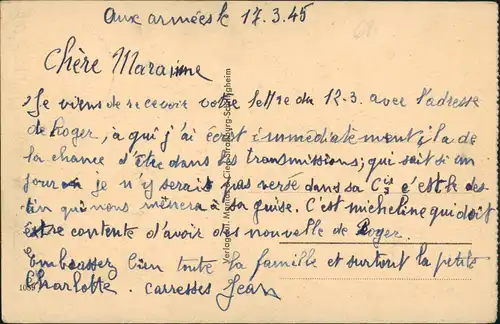 Aux armées le 17.3.45
Chère Maraine
Je viens de recevoir votre lettre du 12-3. avec l'adresse
de Roger, à qui j'ai écrit immédiatement; il a de
la chance d'être dans les transmissions; qui sait si un
jour je n'y serais pas versé dans sa Cis c'est le des-
tin qui nous mènera à sa guise. C'est micheline qui doit
être contente d'avoir des nouvelle de Roger.
Embrassez bien toute la famille et surtout la petite
Charlotte. carresses Jean
Verlag Cie Strasbourg-Schiltigheim